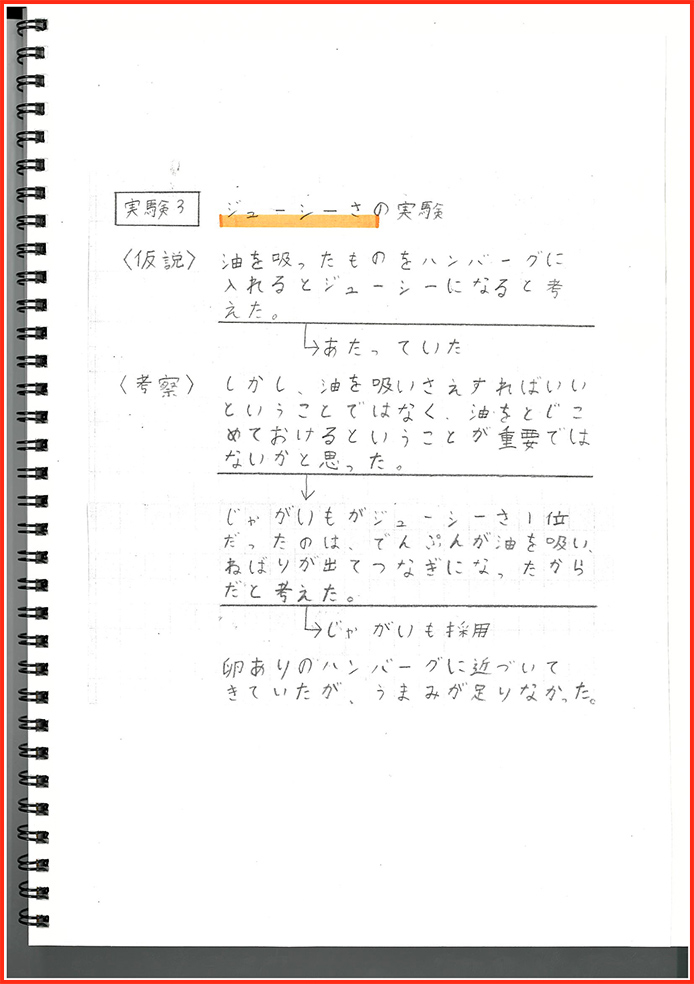 実験3 ジューシーさの実験
〈仮説〉 油を吸ったものをハンバーグに
入れるとジューシーになると考
えた。
↳あたっていた
〈考察〉 しかし、油を吸いさえすればいい
ということではなく、油をとじこ
めておけるということが重要では
ないかと思った。
↓
じゃがいもがジューシーさ1位
だったのは、でんぷんが油を吸い、
ねばりが出てつなぎになったから
だと考えた。
↳じゃがいも採用
卵ありのハンバーグに近づいて
きていたが、うまみが足りなかった。